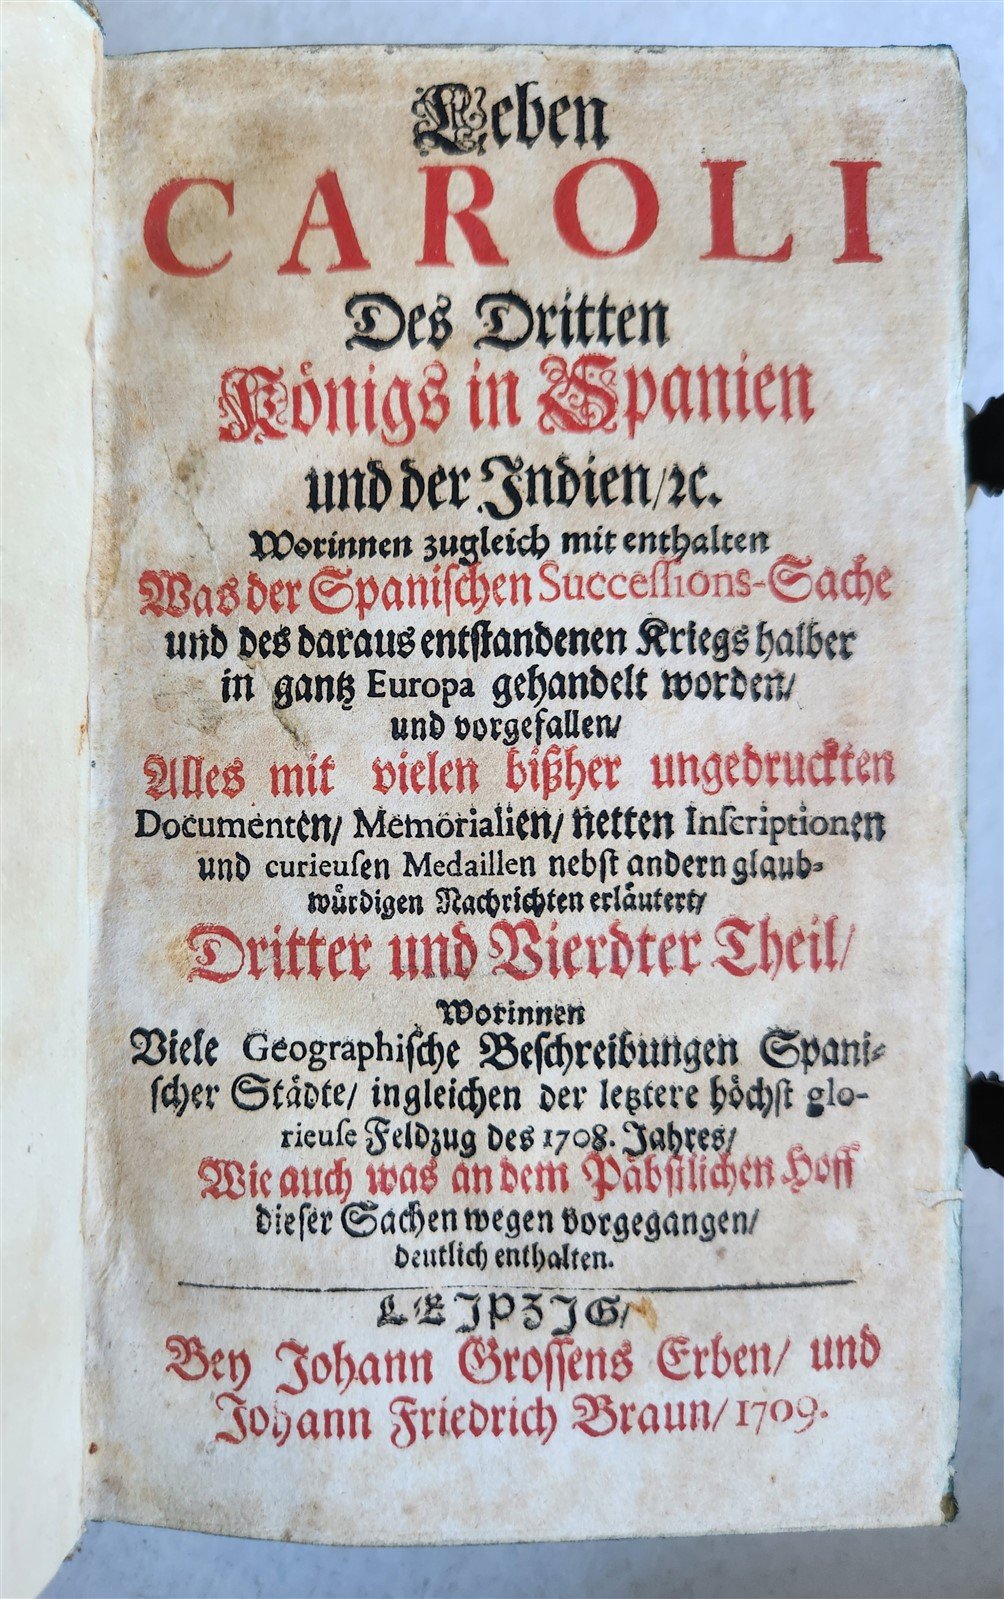 Leben
CAROLI
Des Dritten
Königs in Spanien
und der Indien/ ꝛc.
Worinnen zugleich mit enthalten
Was der Spanischen Successions-Sache
und des daraus entstandenen Kriegs halber
in gantz Europa gehandelt worden/
und vorgefallen/
Alles mit vielen bißher ungedruckten
Documenten/ Memorialien/ netten Inscriptionen
und curieusen Medaillen nebst andern glaub-
würdigen Nachrichten erläutert/
Dritter und Vierdter Theil/
Worinnen
Viele Geographische Beschreibungen Spani-
scher Städte/ ingleichen der letztere höchst glo-
rieuse Feldzug des 1708. Jahres/
Wie auch was an dem Päbstlichen Hoff
dieser Sachen wegen vorgegangen/
deutlich enthalten.
LEIPZIG/
Bey Johann Grossens Erben/ und
Johann Friedrich Braun/ 1709.